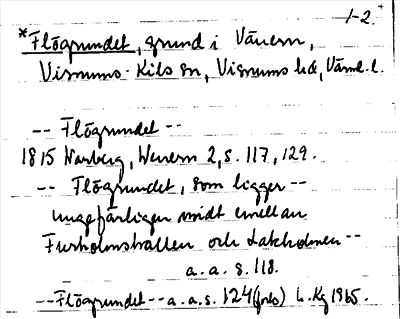 1-2.
*Flögrundet, grund i Vänern,
Visnums-Kils sn, Visnums hd, Värml. l.
-- Flögrundet --
1815 Warberg, Wenern 2, s. 117, 129.
-- Flögrundet, som ligger --
ungefärligen midt emellan
Furholmshallen och Lakholmen --
a. a. s. 118.
-- Flögrundet -- a. a. s. 124 (förb) L. Kg 1965.